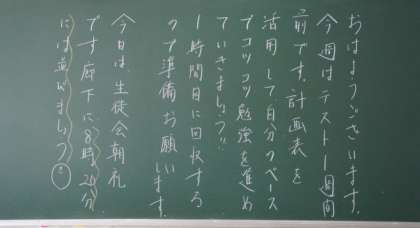 おはようございます。
今週はテスト1週間
前です。計画表を
活用して自分のペース
でコツコツ勉強を進め
ていきましょう!!
1時間目に回収する
ので準備お願い
します。
今日は、生徒会朝礼
です。廊下に8時20分
には並びましょう。